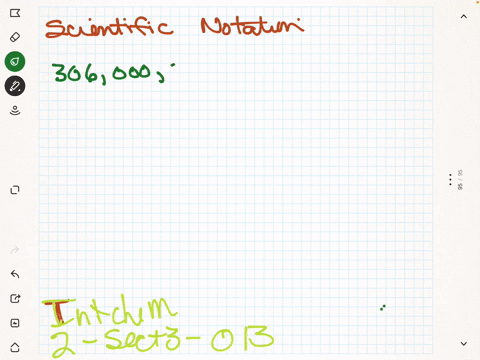 Scientific Notation
306,000,
Intchem
2-Sect3-OB
95 / 95